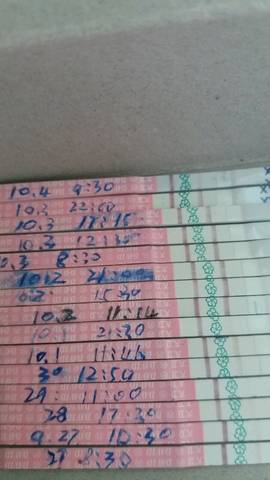 10.4 9:30
10.3 22:00
10.3 17:15
10.3 12:30
0.3 8:30
10.2 21:00
15:30
10.2 11:14
10.1 21:30
10.1 11:45
30 12:50
29. 11:00
28 17:30
9.27 10:30
27 8:30